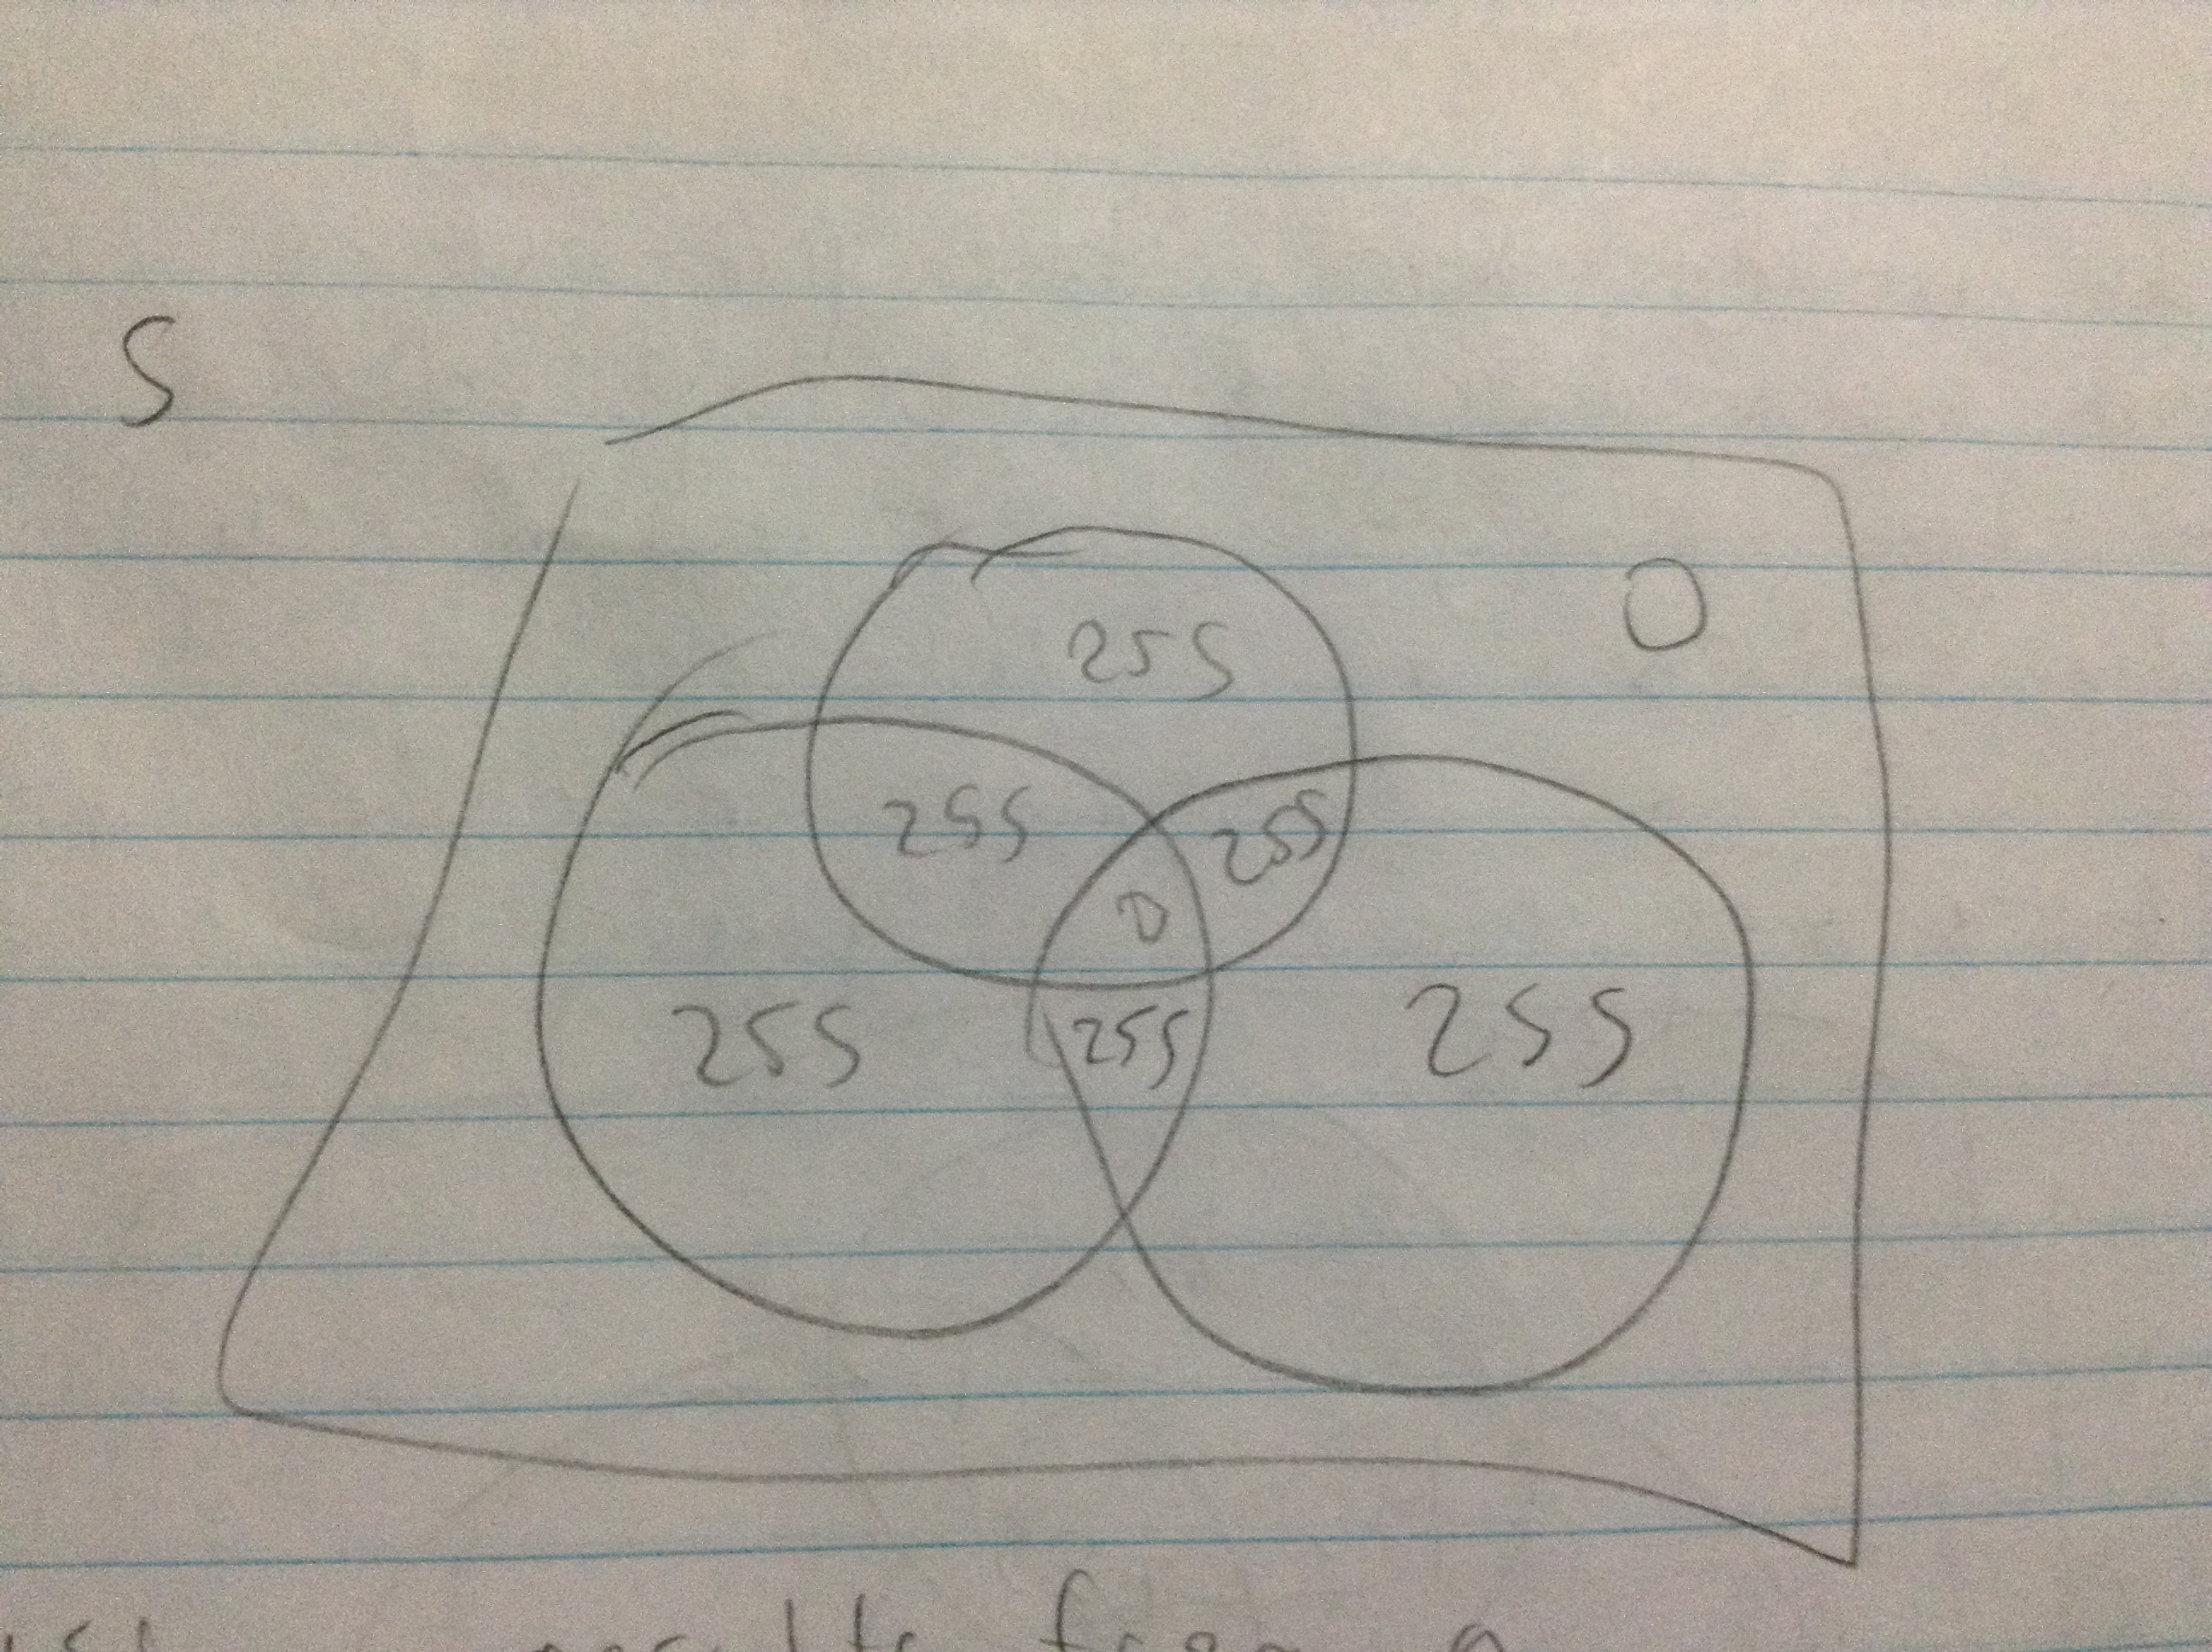 S
255 0
255 255
0
255 255 255